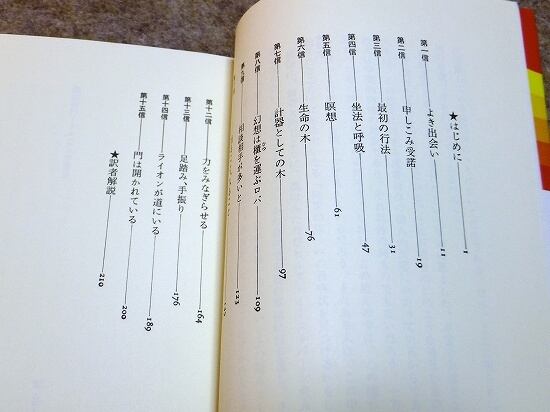 ★はじめに 1
第一信 よき出会い 11
第二信 申しこみ受諾 19
第三信 最初の行法 31
第四信 坐法と呼吸 47
第五信 瞑想 61
第六信 生命の木 76
第七信 計器としての木 97
第八信 幻想は櫃を運ぶロバ 109
第九信 相談相手は多いと 123
第十二信 力をみなぎらせる 164
第十三信 足踏み、手振り 176
第十四信 ライオンが道にいる 189
第十五信 門は開かれている 200
★訳者解説 210